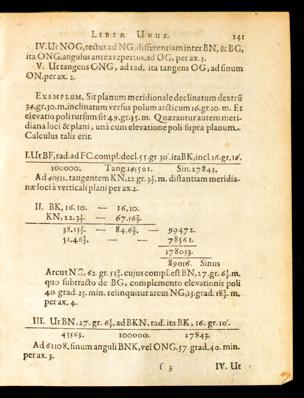 LIBER UNUS. 141
IV. Ut NOG, rectus ad NG, differentiam inter BN, & BG,
ita ONG, angulus antea repertus, ad OG, per ax. 3.
V. Ut tangens ONG, ad rad. ita tangens OG, ad sinum
ON, per ax. 2.
EXEMPLUM. Sit planum meridionale declinatum dextrũ
34. gr. 30. m, inclinatum versus polum arcticum 16. gr. 10. m. Et
elevatio poli rursum sit 49. gr. 35. m. Quærantur autem meri-
diana loci & plani, unà cum elevatione poli supra planum.
Calculus talis erit.
I. Ut BF, rad. ad FC. compl. decl. 55. gr 30'. ita BK, incl. 16. gr. 10'.
100000. Tang. 145501. Sin. 27843.
Ad 40511. tangentem KN, 22 gr. 3¾. m. distantiam meridia-
næ loci à verticali plani per ax. 2.
II. BK, 16. 10. — 16. 10.
KN, 22. 3¾. — 67. 56¼.
38. 13¾. — 84. 6¼. — 99472.
51. 46¼. — — 78561.
178033.
89016. Sinus
Arcus NC, 62. gr. 53¾. cujus compl. est BN, 27. gr. 6¼. m.
quo subtracto de BG, complemento elevationis poli
40. grad. 25. min. relinquitur arcus NG, 13. grad. 18¾. m.
per ax. 4.
III. Ut BN. 27. gr. 6¼, ad BKN, rad. ita BK, 16. gr. 10'.
45563. 100000. 27843.
Ad 61108. sinum anguli BNK, vel ONG. 37. grad. 40. min.
per ax. 3.
f 3 IV. Ut